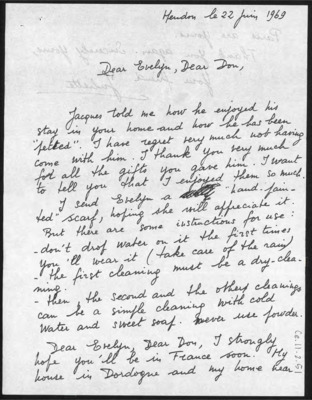 Meudon le 22 juin 1969
Dear Evelyn, Dear Don,
Jacques told me how he enjoyed his
stay in your home and how he has been
"feeted". I have regret very much not having
come with him. I thank you very much
for all the gifts you gave him. I want
to tell you that I enjoyed them so much.
I send Evelyn a "hand-pain-
ted" scarf, hoping she will appreciate it.
But there are some instructions for use:
- don't drop water on it the first times
you'll wear it (take care of the rain)
- the first cleaning must be a dry-clea-
ning.
- then the second and the others cleanings
can be a simple cleaning with cold
water and sweet soap. Never use powder.
Dear Evelyn, Dear Don, I strongly
hope you'll be in France soon. My
house in Dordogne and my home hear